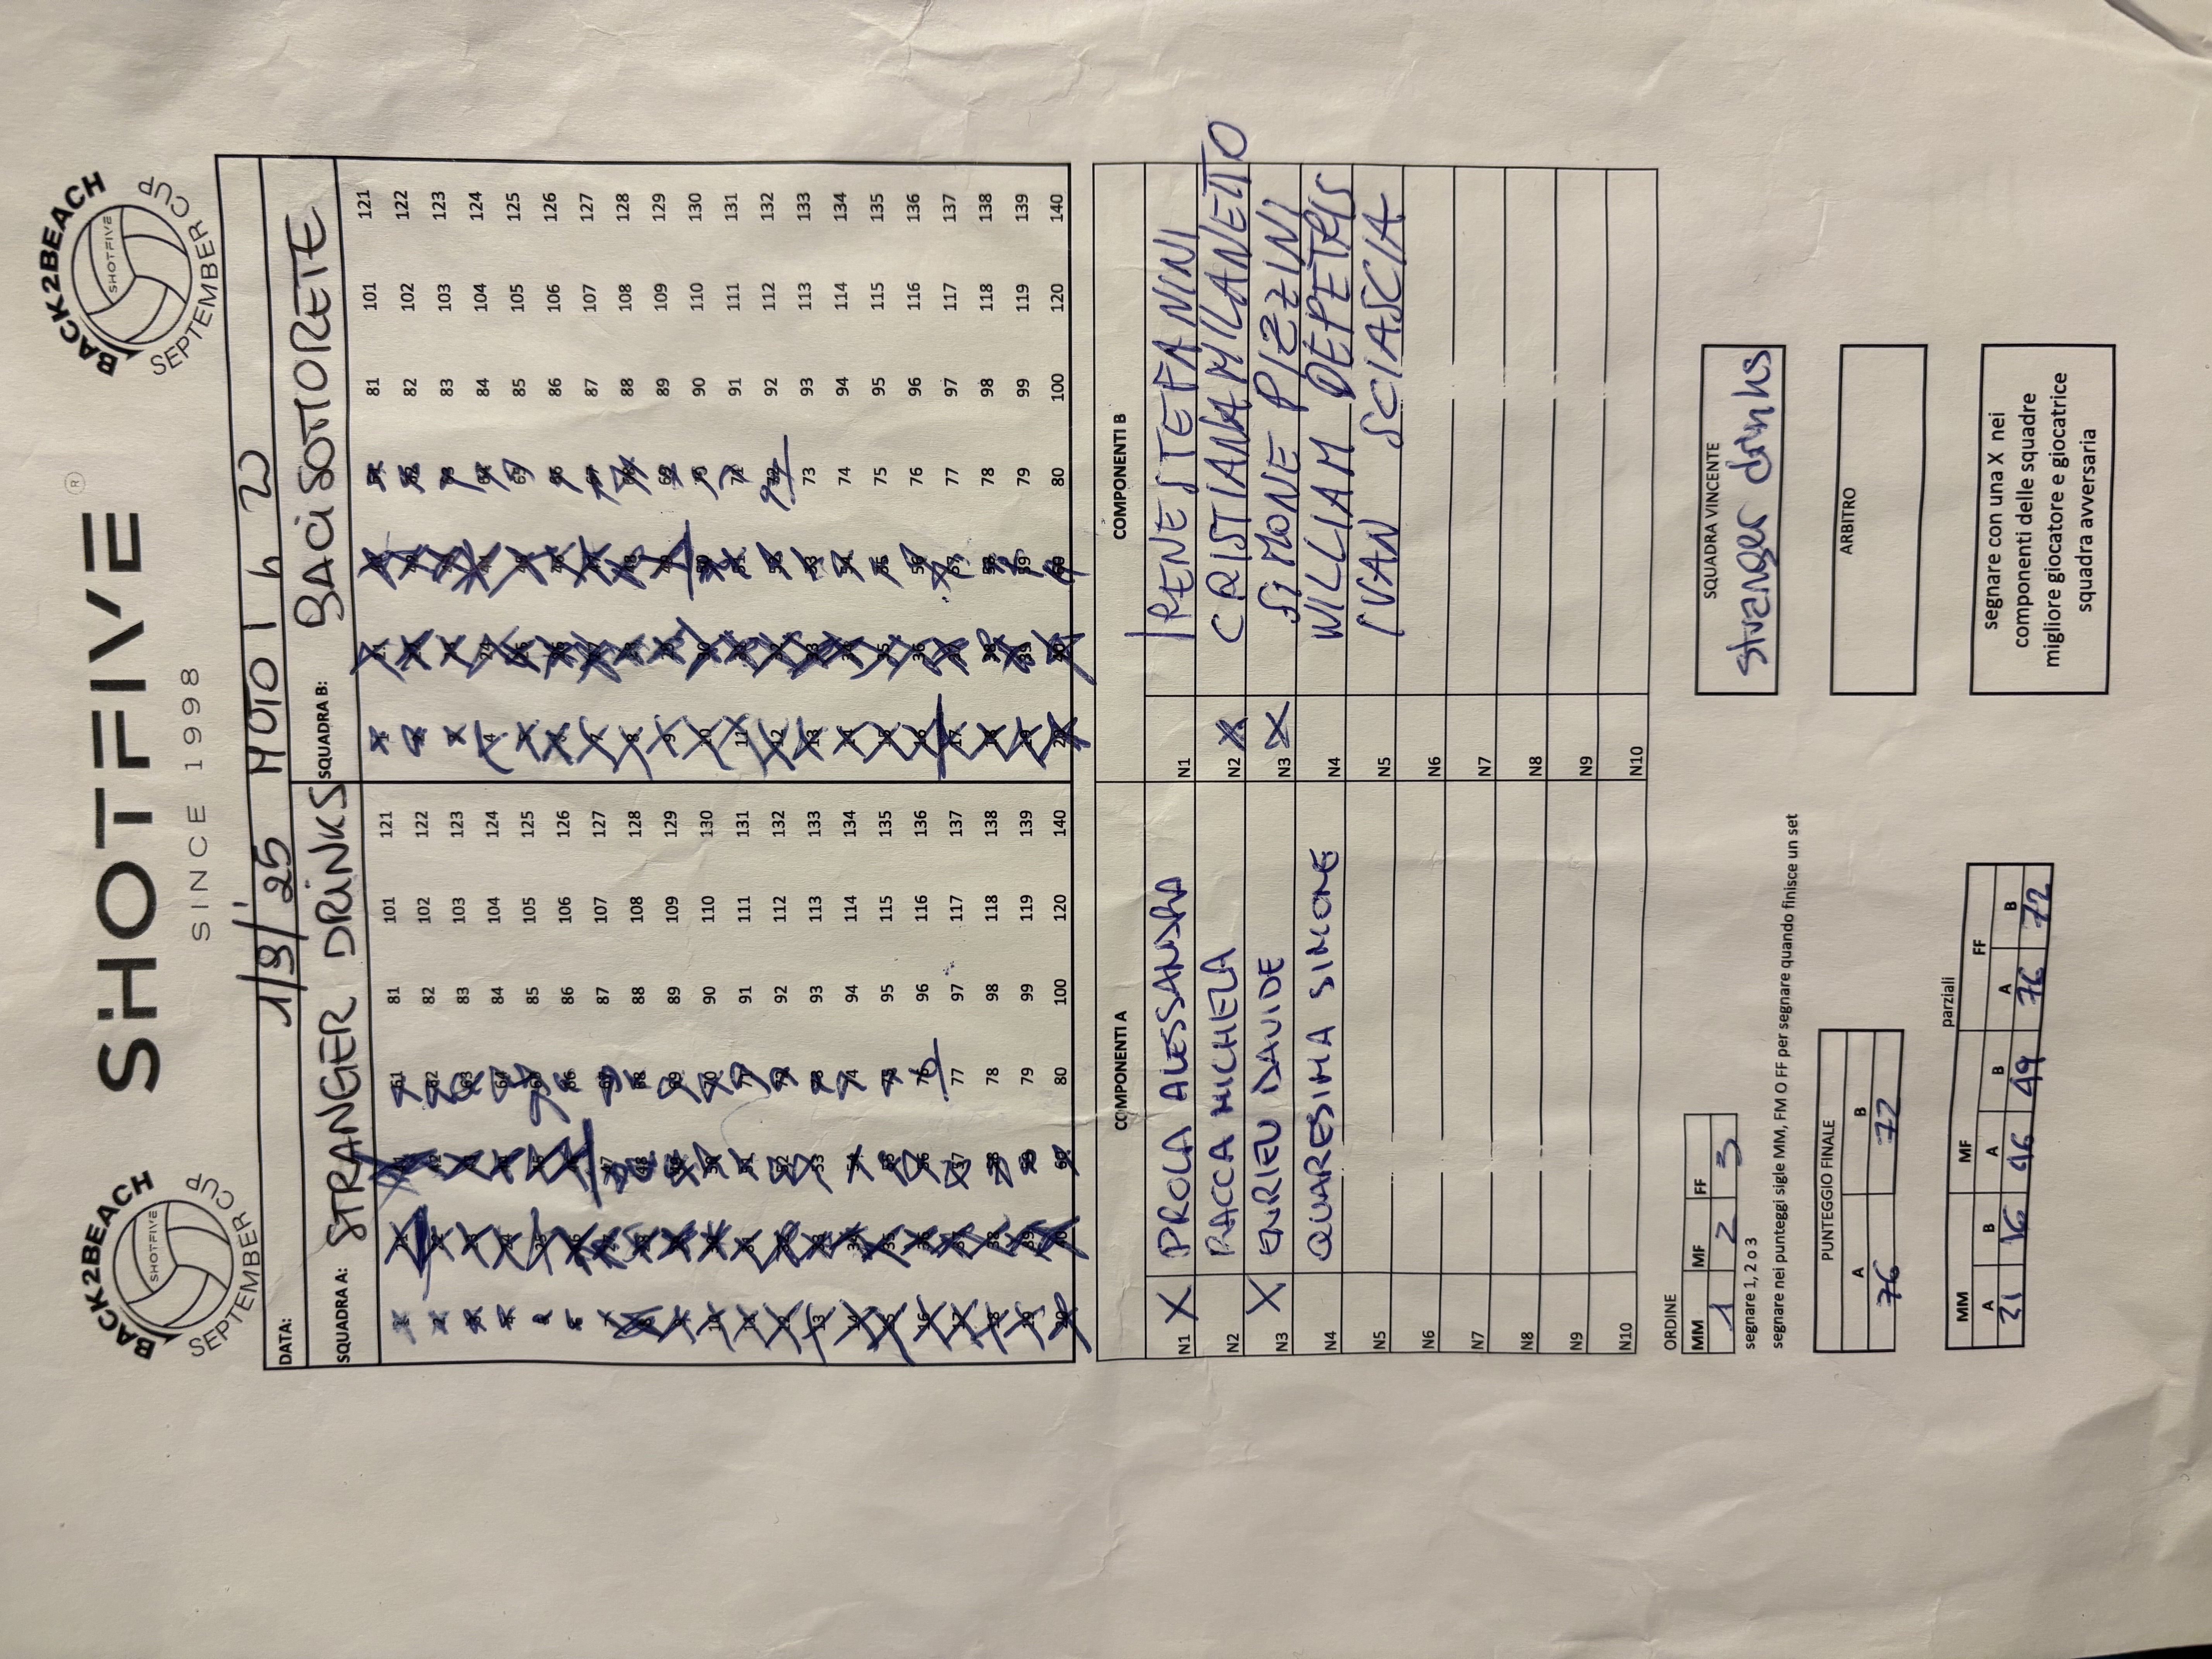 BACK2BEACH
SHOTFIVE
SEPTEMBER CUP
SHOTFIVE ®
SINCE 1998
BACK2BEACH
SHOTFIVE
SEPTEMBER CUP
DATA: 1/9/'25 MOTO 1 h 20
SQUADRA A: STRANGER DRINKS
SQUADRA B: BACI SOTTORETE
1 21 41 61 81 101 121
2 22 42 62 82 102 122
3 23 43 63 83 103 123
4 24 44 64 84 104 124
5 25 45 65 85 105 125
6 26 46 66 86 106 126
7 27 47 67 87 107 127
8 28 48 68 88 108 128
9 29 49 69 89 109 129
10 30 50 70 90 110 130
11 31 51 71 91 111 131
12 32 52 72 92 112 132
13 33 53 73 93 113 133
14 34 54 74 94 114 134
15 35 55 75 95 115 135
16 36 56 76 96 116 136
17 37 57 77 97 117 137
18 38 58 78 98 118 138
19 39 59 79 99 119 139
20 40 60 80 100 120 140
1 21 41 61 81 101 121
2 22 42 62 82 102 122
3 23 43 63 83 103 123
4 24 44 64 84 104 124
5 25 45 65 85 105 125
6 26 46 66 86 106 126
7 27 47 67 87 107 127
8 28 48 68 88 108 128
9 29 49 69 89 109 129
10 30 50 70 90 110 130
11 31 51 71 91 111 131
12 32 52 72 92 112 132
13 33 53 73 93 113 133
14 34 54 74 94 114 134
15 35 55 75 95 115 135
16 36 56 76 96 116 136
17 37 57 77 97 117 137
18 38 58 78 98 118 138
19 39 59 79 99 119 139
20 40 60 80 100 120 140
COMPONENTI A
N1 X PROLA ALESSANDRA
N2 RACCA MICHELA
N3 X ENRIEU DAVIDE
N4 QUARESIMA SIMONE
N5
N6
N7
N8
N9
N10
COMPONENTI B
N1 IRENE STEFANINI
N2 X CRISTIANA MILANETTO
N3 X SIMONE PIZZINI
N4 WILLIAM DEPETRIS
N5 IVAN SCIASCIA
N6
N7
N8
N9
N10
ORDINE
MM MF FF
1 2 3
segnare 1, 2 o 3
segnare nei punteggi sigle MM, FM O FF per segnare quando finisce un set
PUNTEGGIO FINALE
A B
76 72
parziali
MM MF FF
A B A B A B
21 16 46 49 76 72
SQUADRA VINCENTE
Stranger drinks
ARBITRO
segnare con una X nei
componenti delle squadre
migliore giocatore e giocatrice
squadra avversaria